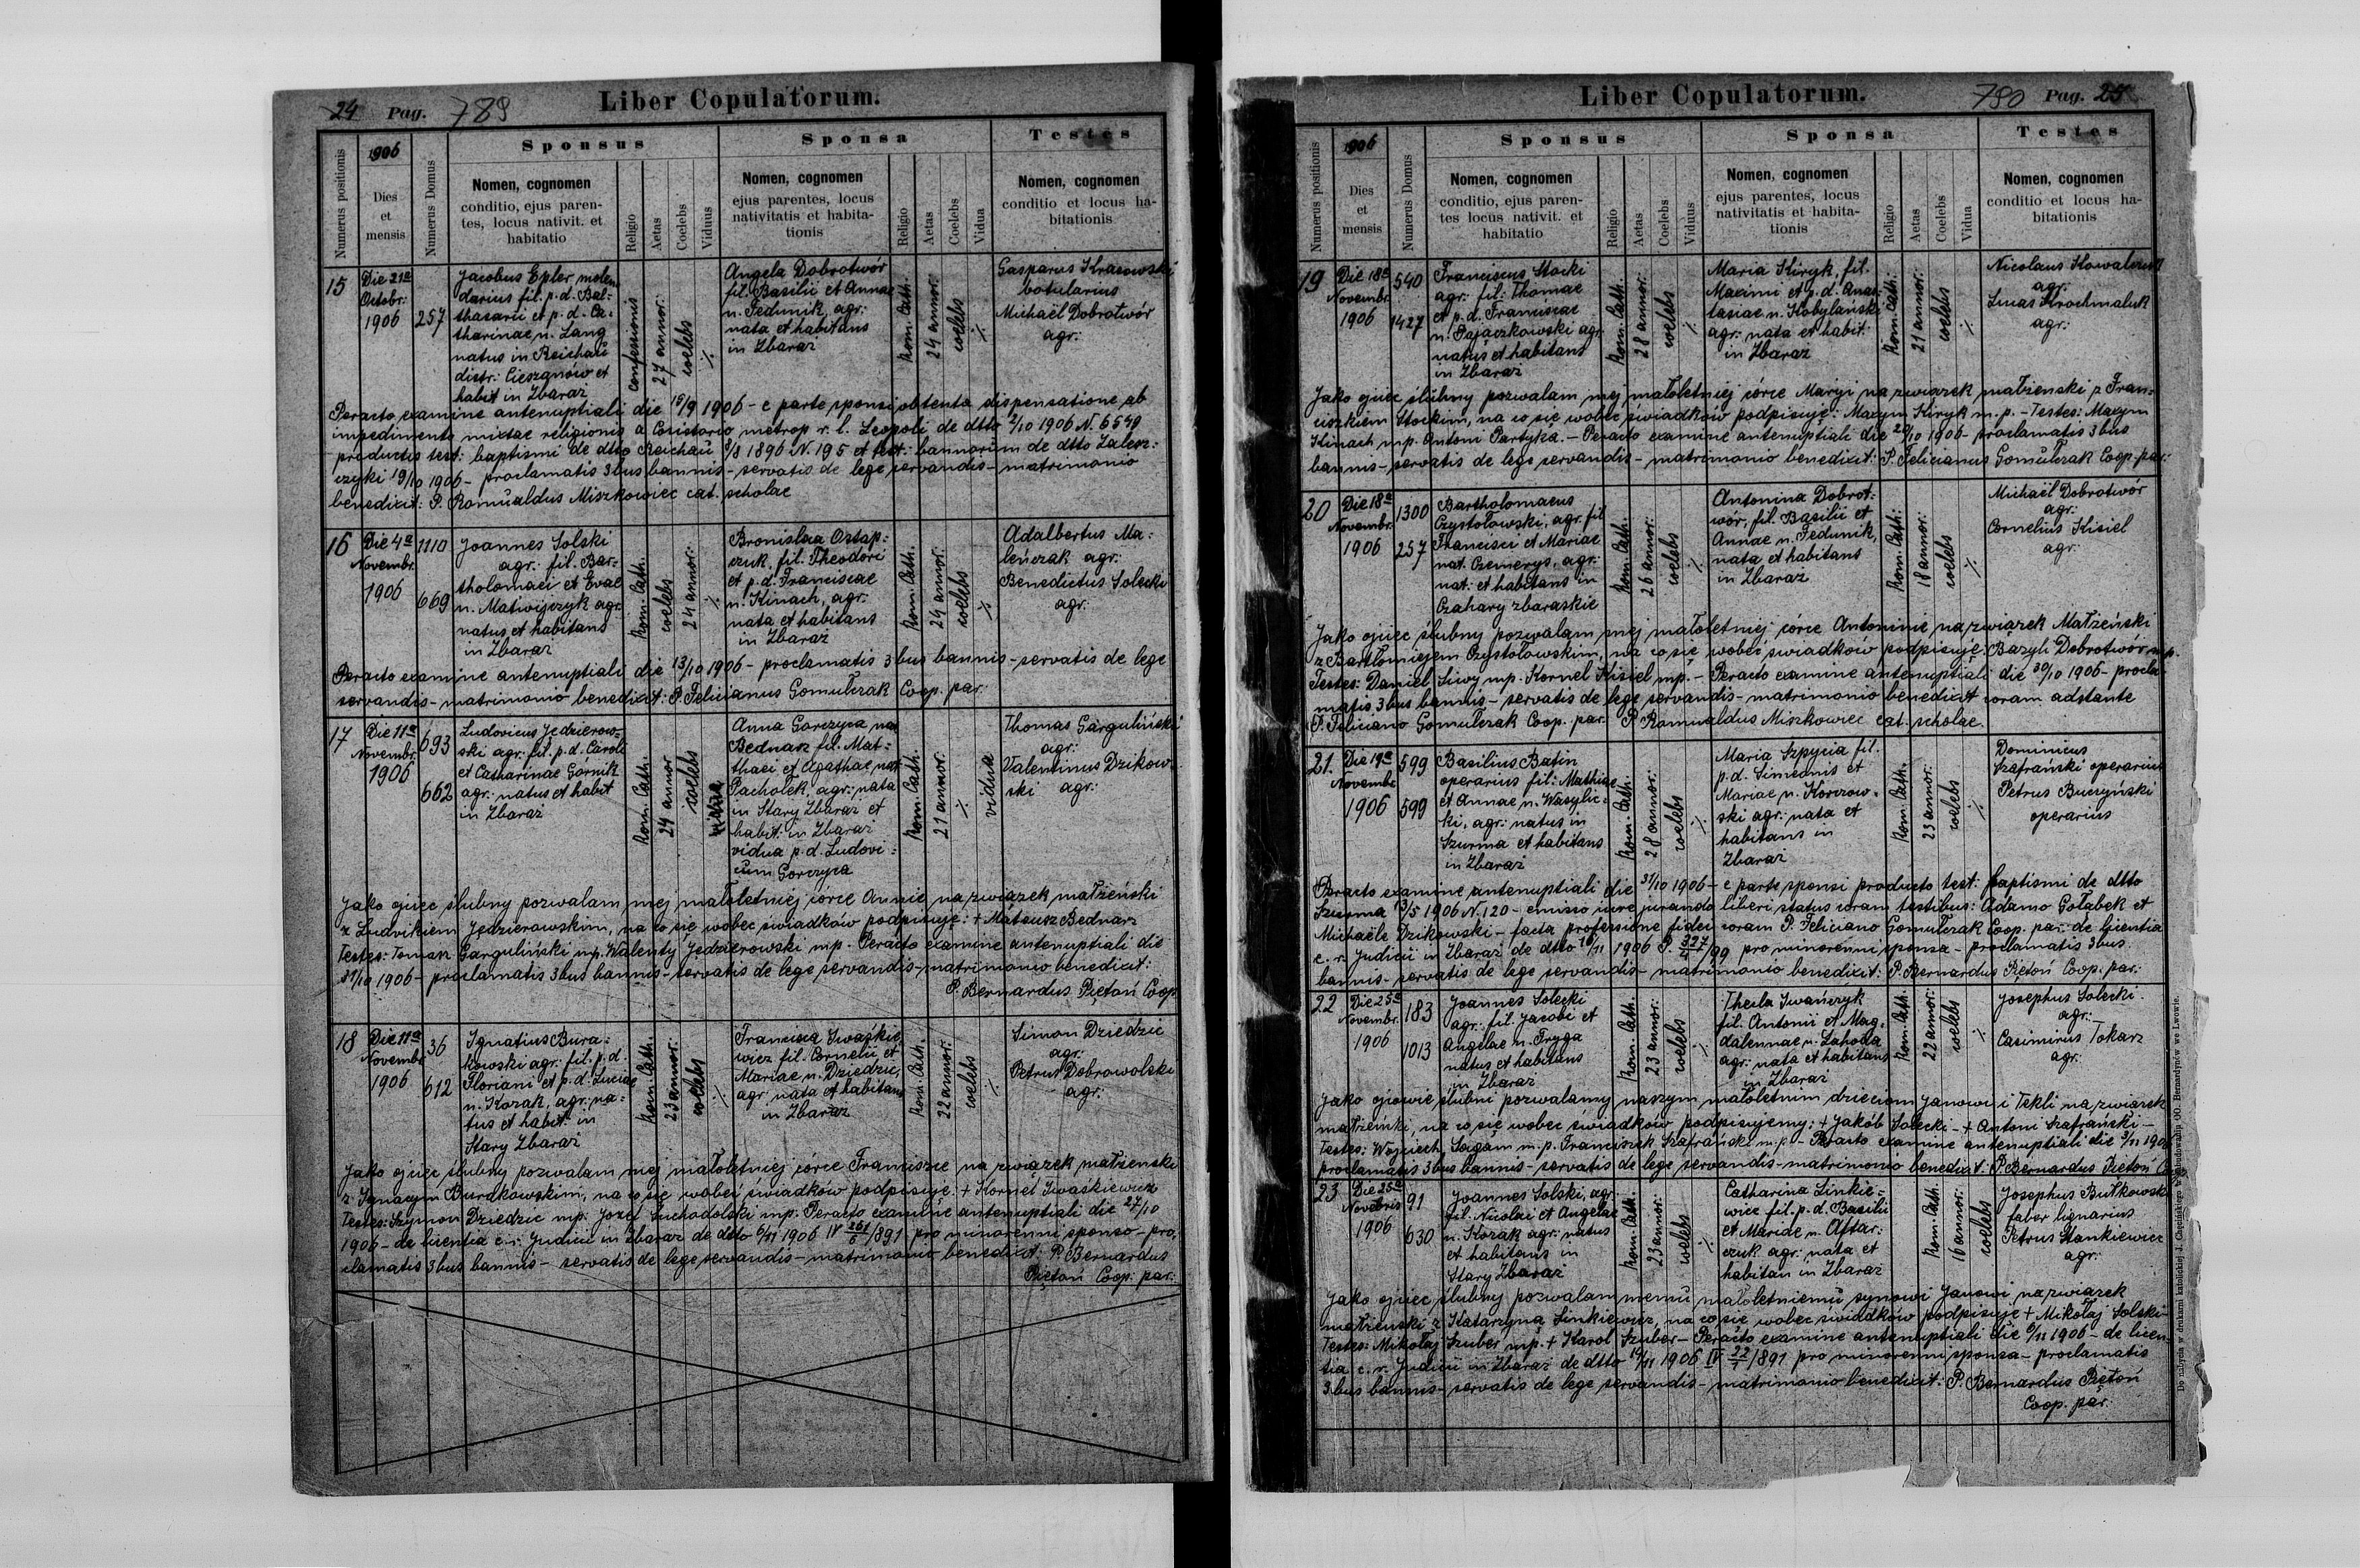 24 Pag. 789 Liber Copulatorum.
Numerus positionis
1906
Dies
et
mensis
Numerus Domus
Sponsus
Nomen, cognomen
conditio, ejus paren-
tes, locus nativit. et
habitatio
Religio
Aetas
Coelebs
Viduus
Sponsa
Nomen, cognomen
ejus parentes, locus
nativitatis et habita-
tionis
Religio
Aetas
Coelebs
Vidua
Testes
Nomen, cognomen
conditio et locus ha-
bitationis
15
Die 21a
Octobr:
1906
257
Jacobus Epler molen
darius fil. p. d. Bal=
thasarii et p. d. Ca=
tharinae n. Lang
natus in Reichau
distr: Cieszanów et
habit in Zbaraż
confessionis
27 annor:
coelebs
%
Angela Dobrotwór
fil. Basilii et Annae
n. Fedunik, agr:
nata et habitans
in Zbaraż
Rom. Cath.
24 annor:
coelebs
%
Gasparus Krasowski
botularius
Michaël Dobrotwór
agr:
Peracto examine antenuptiali die 15/9 1906 - e parte sponsi obtenta dispensatione ab
impedimento mixtae religionis a Consistorio metrop r. l. Leopoli de dtto 2/10 1906 N. 6549
productis test: baptismi de dtto Reichau 8/8 1896 N. 195 et test: bannorum de dtto Zalesz=
czyki 19/10 1906 - proclamatis 3bus bannis - servatis de lege servandis - matrimonio
benedixit: P. Romualdus Miszkowiec cat. scholae
16
Die 4a
Novembr.
1906
1110
669
Joannes Solski
agr: fil. Bar=
tholomaei et Evae
n. Matwijczyk agr:
natus et habitans
in Zbaraż
Rom. Cath.
coelebs
24 annor:
%
Bronislaa Ostap=
czuk, fil. Theodori
et p. d. Franciscae
n. Kinach, agr:
nata et habitans
in Zbaraż
Rom. Cath.
24 annor:
coelebs
%
Adalbertus Ma=
leńczak agr:
Benedictus Solecki
agr:
Peracto examine antenuptiali die 13/10 1906 - proclamatis 3bus bannis - servatis de lege
servandis - matrimonio benedixit: P. Felicianus Gomułczak Coop. par:
17
Die 11a
Novembr.
1906
693
662
Ludovicus Jędzierow=
ski agr: fil. p. d. Caroli
et Catharinae Górnik
agr: natus et habit
in Zbaraż
Rom. Cath.
24 annor
coelebs
Anna Gorczyca nat
Bednarz fil. Mat=
thaei et Agathae, nat
Pachołek, agr: nata
in Stary Zbaraż et
habit: in Zbaraż
vidua p. d. Ludovi=
cum Gorczyca
Rom. Cath.
21 annor:
%
vidua
Thomas Garguliński
agr:
Valentinus Dzikow=
ski agr:
Jako ojciec ślubny pozwalam mej małoletniej córce Annie na związek małżeński
z Ludwikiem Jędzierowskim, na co się wobec świadków podpisuję: + Mateusz Bednarz
Testes: Tomasz Garguliński mp. Walenty Jędzierowski mp. Peracto examine antenuptiali die
31/10 1906 - proclamatis 3bus bannis - servatis de lege servandis - matrimonio benedixit:
P. Bernardus Piętoń Coop.
18
Die 11a
Novembr
1906
36
612
Ignatius Bura=
kowski agr: fil. p. d.
Floriani et p. d. Luciae
n. Kozak, agr: na=
tus et habit: in
Stary Zbaraż
Rom. Cath.
23 annor:
coelebs
%
Francisca Iwaśkie
wicz fil. Cornelii et
Mariae n. Dziedzic,
agr nata et habitans
in Zbaraż
Rom. Cath.
22 annor:
coelebs
%
Simon Dziedzic
agr:
Petrus Dobrowolski
agr:
Jako ojciec ślubny pozwalam mej małoletniej córce Franciszce na związek małżeński
z Ignacym Burakowskim, na co się wobec świadków podpisuję: + Kornel Iwaśkiewicz
Testes: Szymon Dziedzic mp: Józef Suchodolski mp: Peracto examine antenuptiali die 27/10
1906 - de licentia c. r. Judicii in Zbaraż de dtto 6/11 1906 IV 261/6 /891 pro minorenni sponso - pro=
clamatis 3bus bannis - servatis de lege servandis - matrimonio benedixit: P. Bernardus
Piętoń Coop. par:
Liber Copulatorum. 790 Pag. 25
Numerus positionis
1906
Dies
et
mensis
Numerus Domus
Sponsus
Nomen, cognomen
conditio, ejus paren-
tes locus nativit. et
habitatio
Religio
Aetas
Coelebs
Vidus
Sponsa
Nomen, cognomen
ejus parentes, locus
nativitatis et habita-
tionis
Religio
Aetas
Coelebs
Vidua
Testes
Nomen, cognomen
conditio et locus ha-
bitationis
19
Die 18a
Novembr.
1906
540
1427
Franciscus Stocki
agr: fil: Thomae
et p. d. Franciscae
n. Pajączkowski agr:
natus et habitans
in Zbaraż
Rom. Cath.
28 annor:
coelebs
%
Maria Kiryk, fil.
Maximi et p. d. Anas=
tasiae n. Kobylański
agr: nata et habit:
in Zbaraż
Rom. Cath.
21 annor:
coelebs
%
Nicolaus Kowalczuk
agr:
Lucas Krochmaluk
agr:
Jako ojciec ślubny pozwalam mej małoletniej córce Maryi na związek małżeński z Fran=
ciszkiem Stockim, na co się wobec świadków podpisuję: Maxym Kiryk m. p. - Testes: Maxym
Kinach mp. Antoni Partyka. - Peracto examine antenuptiali die 29/10 1906 - proclamatis 3bus
bannis - servatis de lege servandis - matrimonio benedixit: P. Felicianus Gomułczak Coop. par:
20
Die 18a
Novembr.
1906
1300
257
Bartholomaeus
Czystołowski, agr. fil
Francisci et Mariae
nat. Czemerys, agr:
nat: et habitans in
Czahary zbaraskie
Rom. Cath.
26 annor:
coelebs
%
Antonina Dobrot=
wór, fil. Basilii et
Annae n. Fedunik,
nata et habitans
in Zbaraż
Rom. Cath:
18 annor:
coelebs
%
Michaël Dobrotwór
agr:
Cornelius Kisiel
agr:
Jako ojciec ślubny pozwalam mej małoletniej córce Antoninie na związek Małżeński
z Bartłomiejem Czystołowskim, na co się wobec świadków podpisuję: Bazyli Dobrotwór m.p.
Testes: Daniel Siwy mp. Kornel Kisiel mp. - Peracto examine antenuptiali die 30/10 1906 - procla=
matis 3bus bannis - servatis de lege servandis - matrimonio benedixit coram adstante
P. Feliciano Gomułczak Coop. par. P. Romualdus Miszkowiec cat. scholae.
21.
Die 19a
Novembr
1906
599
599
Basilius Batin
operarius fil: Mathiae
et Annae n. Wasylic=
ki, agr: natus in
Szurma et habitans
in Zbaraż
Rom. Cath.
28 annor:
coelebs
%
Maria Szpycia fil.
p. d. Simeonis et
Mariae n. Korzow=
ski agr: nata et
habitans in
Zbaraż
Rom. Cath.
23 annor:
coelebs
%
Dominicus
Szafrański operarius
Petrus Buczyński
operarius
Peracto examine antenuptiali die 31/10 1906 - e parte sponsi producto test: baptismi de dtto
Szurma 13/5 1906 N. 120 - emisso iure jurando liberi status coram testibus: Adamo Gołąbek et
Michaële Dzikowski - facta professione fidei coram P. Feliciano Gomułczak Coop. par: de licentia
c. r. Judicii in Zbaraż de dtto 16/11 1906 /99 pro minorenni sponsa - proclamatis 3bus
bannis - servatis de lege servandis - matrimonio benedixit: P. Bernardus Piętoń Coop. par:
22
Die 25a
Novembr.
1906
183
1013
Joannes Solecki
agr: fil. Jacobi et
Angelae n. Fryga
natus et habitans
in Zbaraż
Rom. Cath.
23 annor:
coelebs
%
Thecla Iwańczyk
fil. Antonii et Mag=
dalennae n. Lahoda
agr: nata et habitans
in Zbaraż
Rom. Cath.
22 annor:
coelebs
%
Josephus Solecki
agr:
Casimirus Tokarz
agr:
Jako ojcowie ślubni pozwalamy naszym małoletnim dzieciom Janowi i Tekli na związek
małżeński, na co się wobec świadków podpisujemy: + Jakób Solecki - + Antoni Szafrański -
Testes: Wojciech Sagan m. p. Franciszek Szafrański m. p. - Peracto examine antenuptiali die 3/11 1906
proclamatis 3bus bannis - servatis de lege servandis - matrimonio benedixit: P. Bernardus Piętoń
23
Die 25a
Novebris
1906
91
630
Joannes Solski, agr.
fil. Nicolai et Angelae
n. Kozak agr: natus
et habitans in
Stary Zbaraż
Rom. Cath.
23 annor:
coelebs
%
Catharina Sinkie=
wicz fil. p. d. Basilii
et Mariae n. Aftar=
czuk agr: nata et
habitan in Zbaraż
Rom. Cath.
16 annor:
coelebs
Josephus Butkowski
faber lignarius
Petrus Stankiewicz
agr:
Jako ojciec ślubny pozwalam memu małoletniemu synowi Janowi na związek
małżeński z Katarzyną Sinkiewicz, na co się wobec świadków podpisuje + Mikołaj Solski -
Testes: Mikołaj Szuber mp. + Karol Szuber - Peracto examine antenuptiali die 6/11 1906 - de licen=
tia c. r. Judicii in Zbaraż de dtto 19/11 1906 IV 22/7 /891 pro minorenni sponsa - proclamatis
3bus bannis - servatis de lege servandis - matrimonio benedixit: P. Bernardus Piętoń
Coop. par:
Do nabycia w drukarni katolickiej J. Chęcińskiego w zabudowaniu OO. Bernardynów we Lwowie.